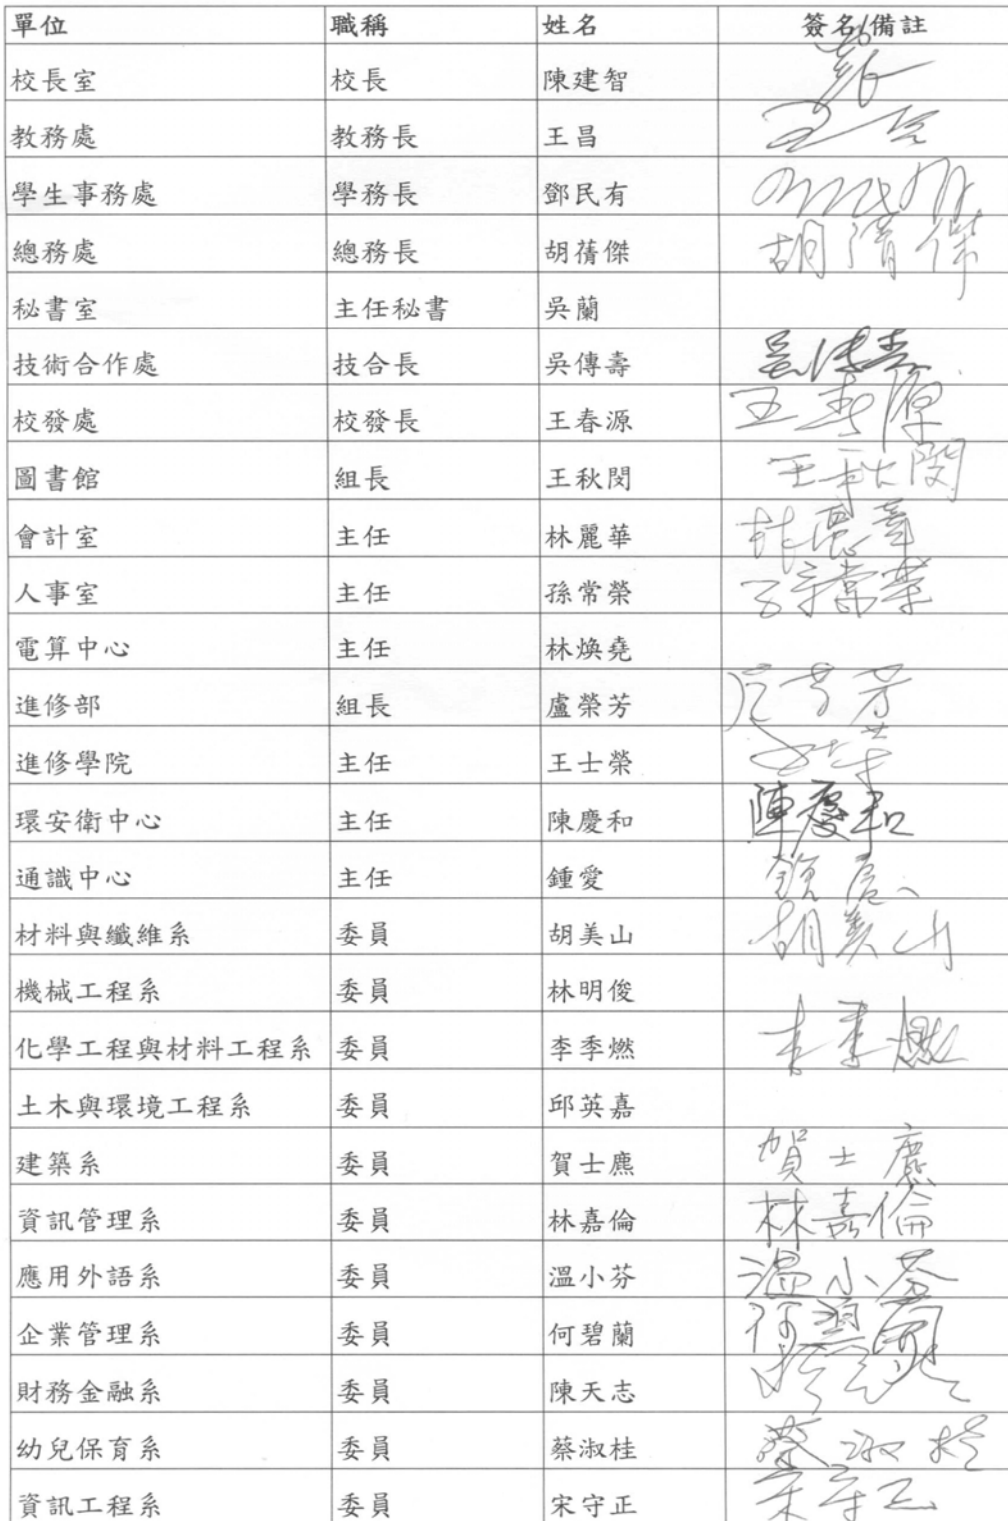 單位 職稱 姓名 簽名/備註
校長室 校長 陳建智
教務處 教務長 王昌
學生事務處 學務長 鄧民有
總務處 總務長 胡蒨傑 胡蒨傑
秘書室 主任秘書 吳蘭
技術合作處 技合長 吳傳壽 吳傳壽
校發處 校發長 王春源 王春源
圖書館 組長 王秋閔 王秋閔
會計室 主任 林麗華 林麗華
人事室 主任 孫常榮 孫常榮
電算中心 主任 林煥堯
進修部 組長 盧榮芳
進修學院 主任 王士榮
環安衛中心 主任 陳慶和 陳慶和
通識中心 主任 鍾愛
材料與纖維系 委員 胡美山 胡美山
機械工程系 委員 林明俊
化學工程與材料工程系 委員 李季燃 李季燃
土木與環境工程系 委員 邱英嘉
建築系 委員 賀士麃 賀士麃
資訊管理系 委員 林嘉倫 林嘉倫
應用外語系 委員 溫小芬 溫小芬
企業管理系 委員 何碧蘭 何碧蘭
財務金融系 委員 陳天志
幼兒保育系 委員 蔡淑桂 蔡淑桂
資訊工程系 委員 宋守正 宋守正